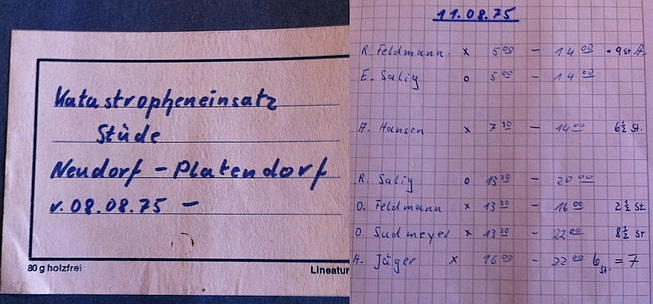 Katastropheneinsatz
Stüde
Neudorf - Platendorf
v. 08.08.75 -
80 g holzfrei
Lineatur
11.08.75
R. Feldmann x 5 00 - 14 00 · 9 St
E. Salig o 5 00 - 14 00
A. Hansen x 7 30 - 14 00 6 ½ St.
R. Salig o 13 30 - 20 00
O. Feldmann x 13 30 - 16 00 2 ½ St
O. Sudmeyer x 13 30 - 22 00 8 ½ St
H. Jäger x 16 00 - 22 00 6 St. = 7